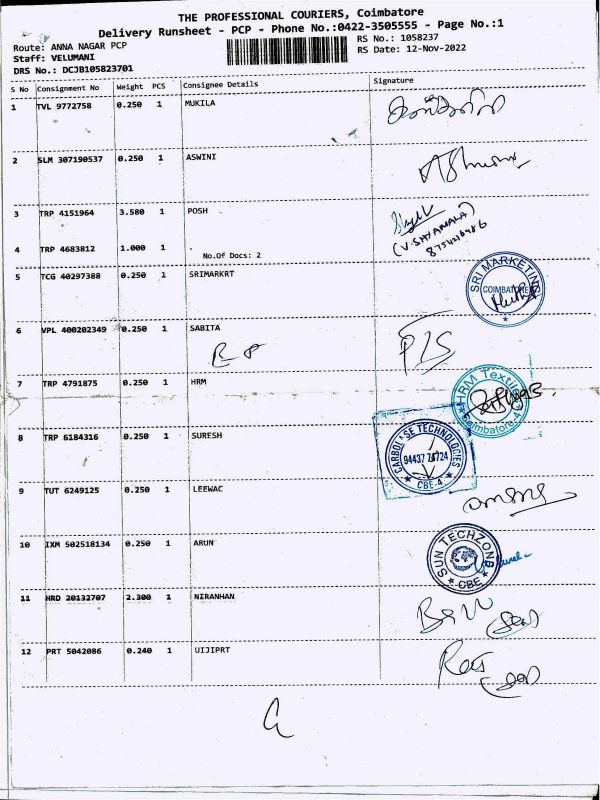 THE PROFESSIONAL COURIERS, Coimbatore
Delivery Runsheet - PCP - Phone No.:0422-3505555 - Page No.:1
Route: ANNA NAGAR PCP
RS No.: 1058237
Staff: VELUMANI
RS Date: 12-Nov-2022
DRS No.: DCJB105823701
S No Consignment No Weight PCS Consignee Details Signature
1 TVL 9772758 0.250 1 MUKILA
2 SLM 307190537 0.250 1 ASWINI
3 TRP 4151964 3.580 1 POSH
(V.SHYAMALA)
4 TRP 4683812 1.000 1
No.Of Docs: 2
5 TCG 40297388 0.250 1 SRIMARKRT
SRI MARKETING
COIMBATORE
6 VPL 400202349 0.250 1 SABITA
7 TRP 4791875 0.250 1 HRM
HRM Textiles
Coimbatore-4
8 TRP 6184316 0.250 1 SURESH
TECHNOLOGIES
CBE-4
9 TUT 6249125 0.250 1 LEEWAC
10 IXM 502518134 0.250 1 ARUN
SUN TECHZONE
CBE
11 HRD 20132707 2.300 1 NIRANHAN
12 PRT 5042086 0.240 1 UIJIPRT